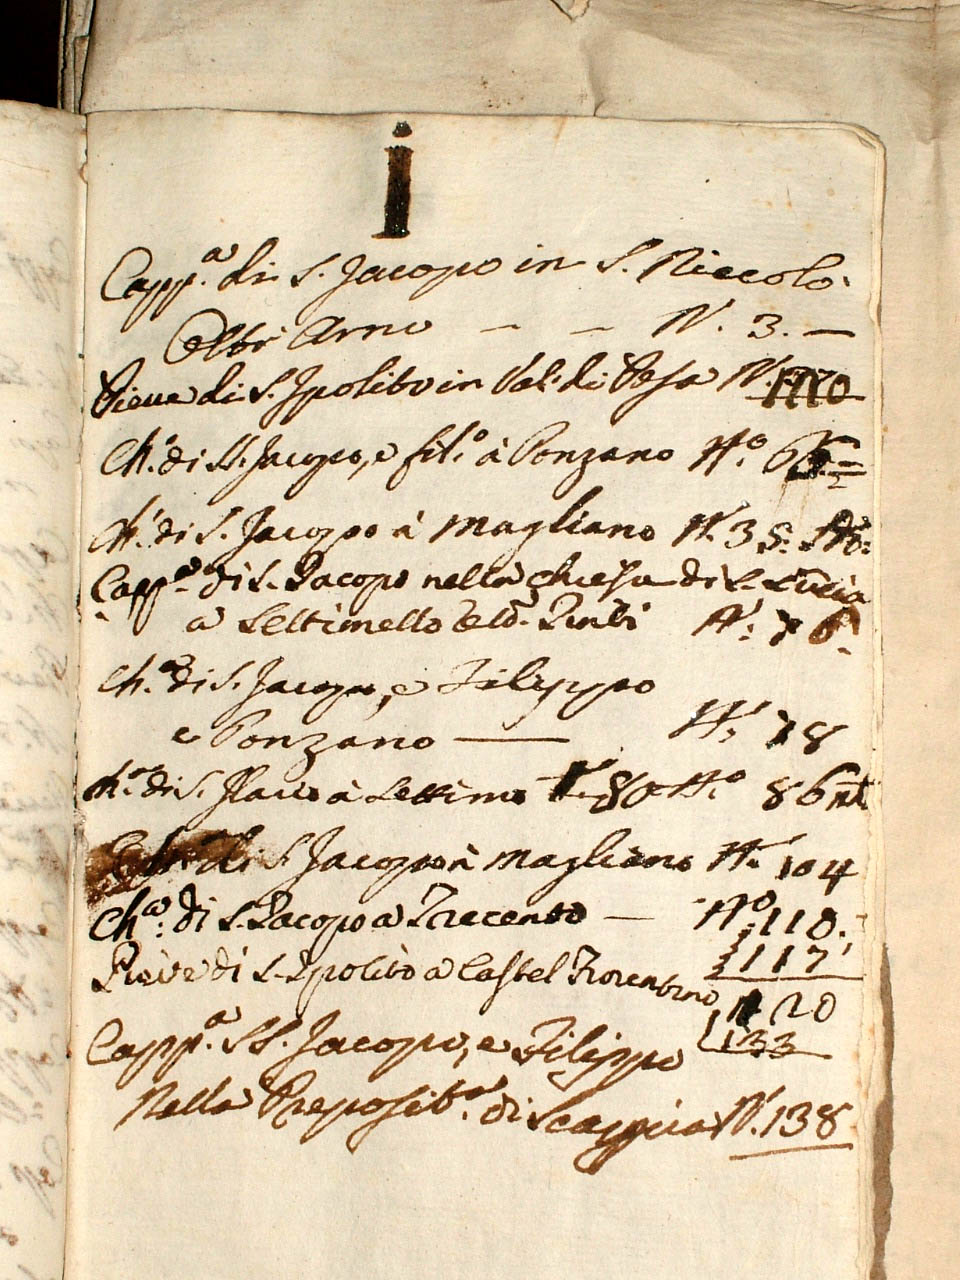 i
Capp.a di S. Jacopo in S. Niccolo
Oltr' Arno - - N. 3. -
Pieve di S. Ipolito in Val di Pesa N.
Ch.a di SS. Jacopo, e fil.o à Ponzano N.o
Ch.a di S. Jacopo à Magliano N. 38:
Capp.a di S. Jacopo nella chiesa di S. Lucia
a Settimello N: 76
Ch.a di S. Jacopo, e Filippo
a Ponzano — N: 78
Ch.a di S. à Settimo 80 N.o 86
Ch.a di S. Jacopo à Magliano N. 104
Ch.a di S. Jacopo a Trecento — N.o 110.
117
Pieve di S. Ipolito a Castel Fiorentino 120
133
Capp.a SS. Jacopo, e Filippo
Nella Preposit.a di N. 138